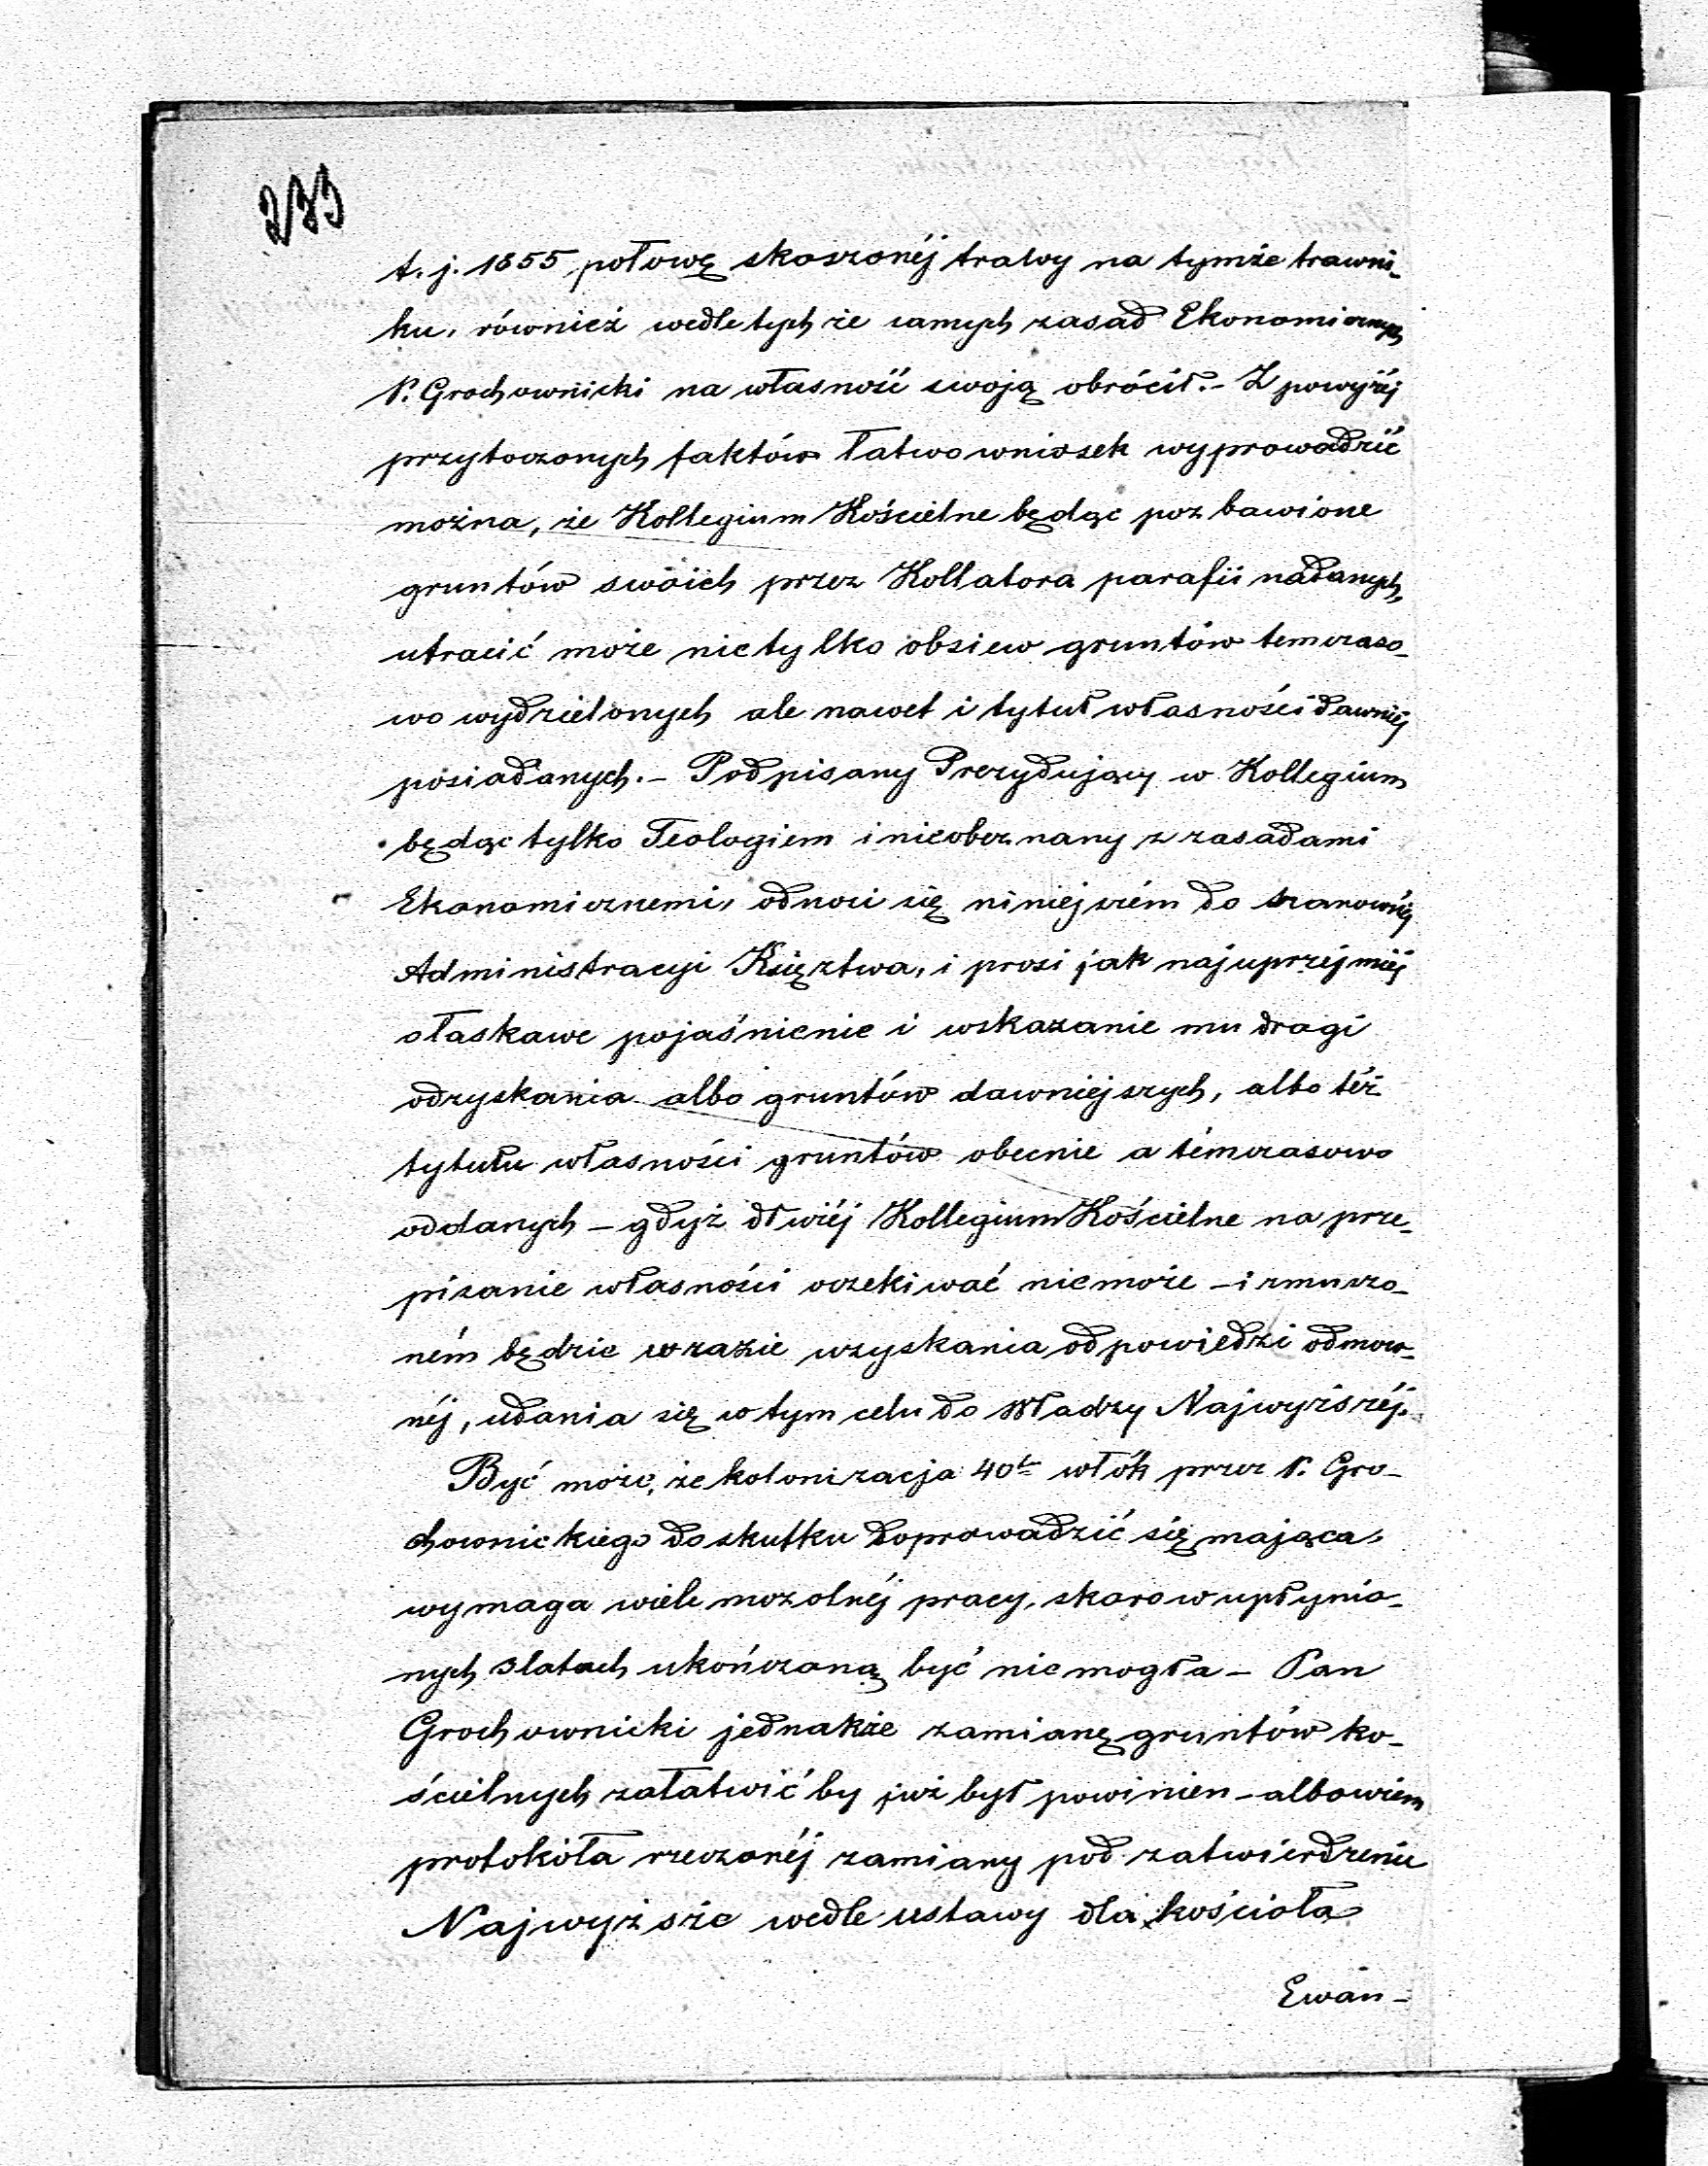 233
t. j. 1855 połowę skoszonéj trawy na tymże trawni-
ku, również wedle tych że samych zasad Ekonomicznych
P. Grochownicki na własność swoją obrócił.- Z powyżéj
przytoczonych faktów łatwo wniosek wyprowadzić
można, że Kollegium Kościelne będąc poz bawione
gruntów swoich przez Kollatora parafii nadanych,
utracić może nietylko obsiew gruntów temczaso-
wo wydzielonych ale nawet i tytuł własności dawniéj
posiadanych.- Podpisany Prezydujący w Kollegium
będąc tylko Teologiem i nieobeznany z zasadami
Ekonomicznemi, odnosi się niniejszém do szanownéj
Administracyi Księztwa, i prosi jak najuprzejmiéj
o łaskawe pojaśnienie i wskazanie mu drogi
odzyskania albo gruntów dawniejszych, albo téż
tytułu własności gruntów obecnie a témczasowo
oddanych - gdyż dłużéj Kollegium Kościelne na prze-
pisanie własności oczekiwać nie może - i zmuszo-
ném będzie w razie uzyskania odpowiedzi odmow-
néj, udania się w tym celu do Władzy Najwyższéj.
Być może, że kolonizacja 40tu włók przez P. Gro-
chownickiego do skutku doprowadzić się mająca,
wymaga wiele mozolnéj pracy, skoro w upłynio-
nych 3 latach ukończoną być nie mogła - Pan
Grochownicki jednakże zamianę gruntów ko-
ścielnych załatwić by już był powinien - albowiem
protokóła rzeczonéj zamiany pod zatwierdzenie
Najwyższe wedle ustawy dla kościoła
Ewan-